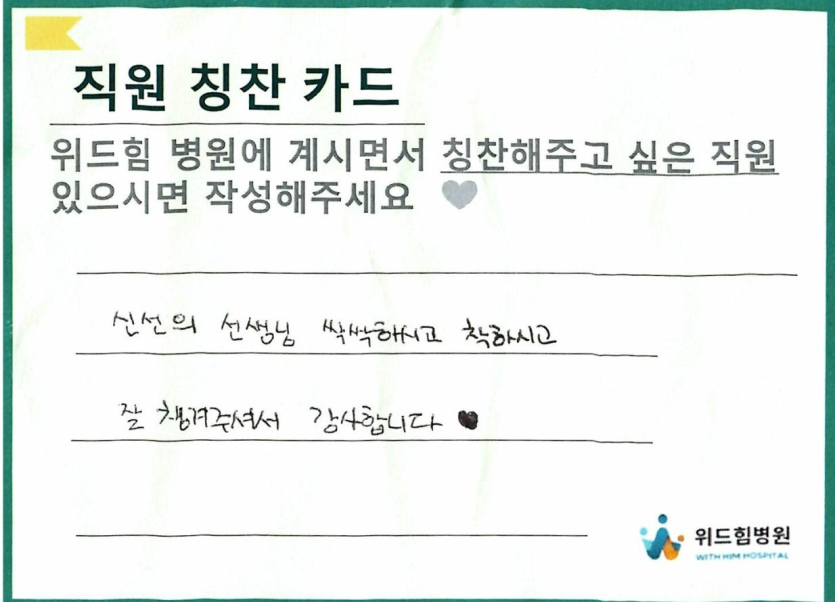 직원 칭찬 카드
위드힘 병원에 계시면서 칭찬해주고 싶은 직원
있으시면 작성해주세요
신선의 선생님 싹싹하시고 착하시고
잘 챙겨주셔서 감사합니다
위드힘병원
WITH HIM HOSPITAL